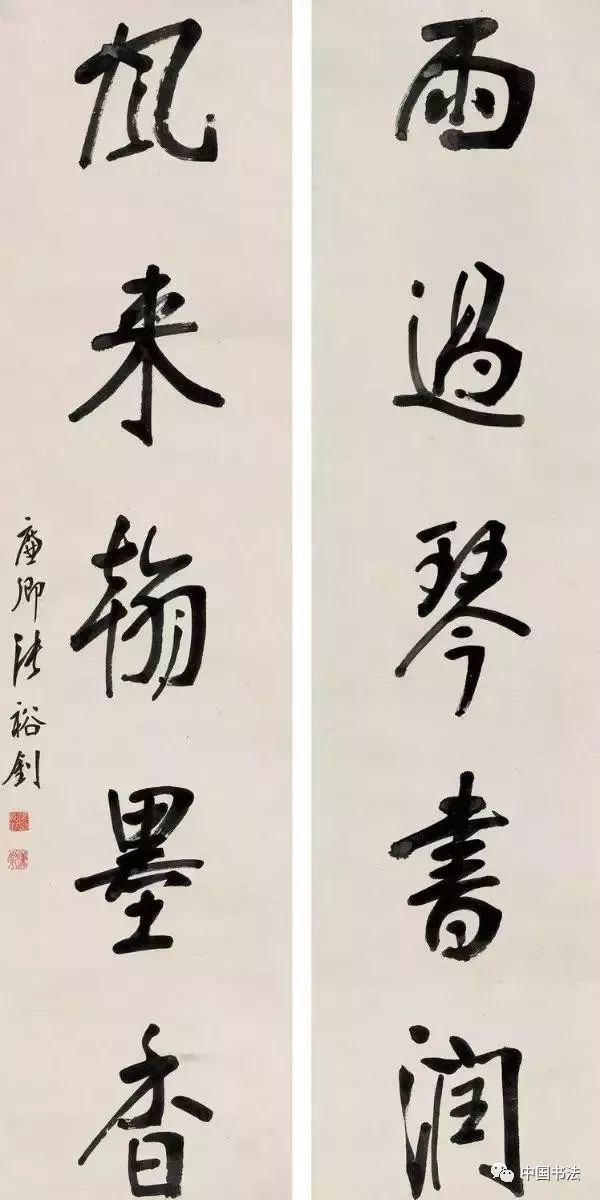 雨過琴書潤
風来翰墨香
廉卿張裕釗
中国书法